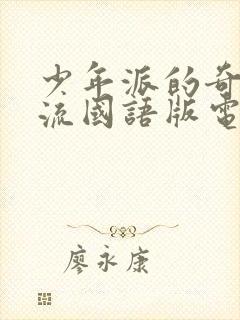 少年派的奇
流國語版電
廖永康